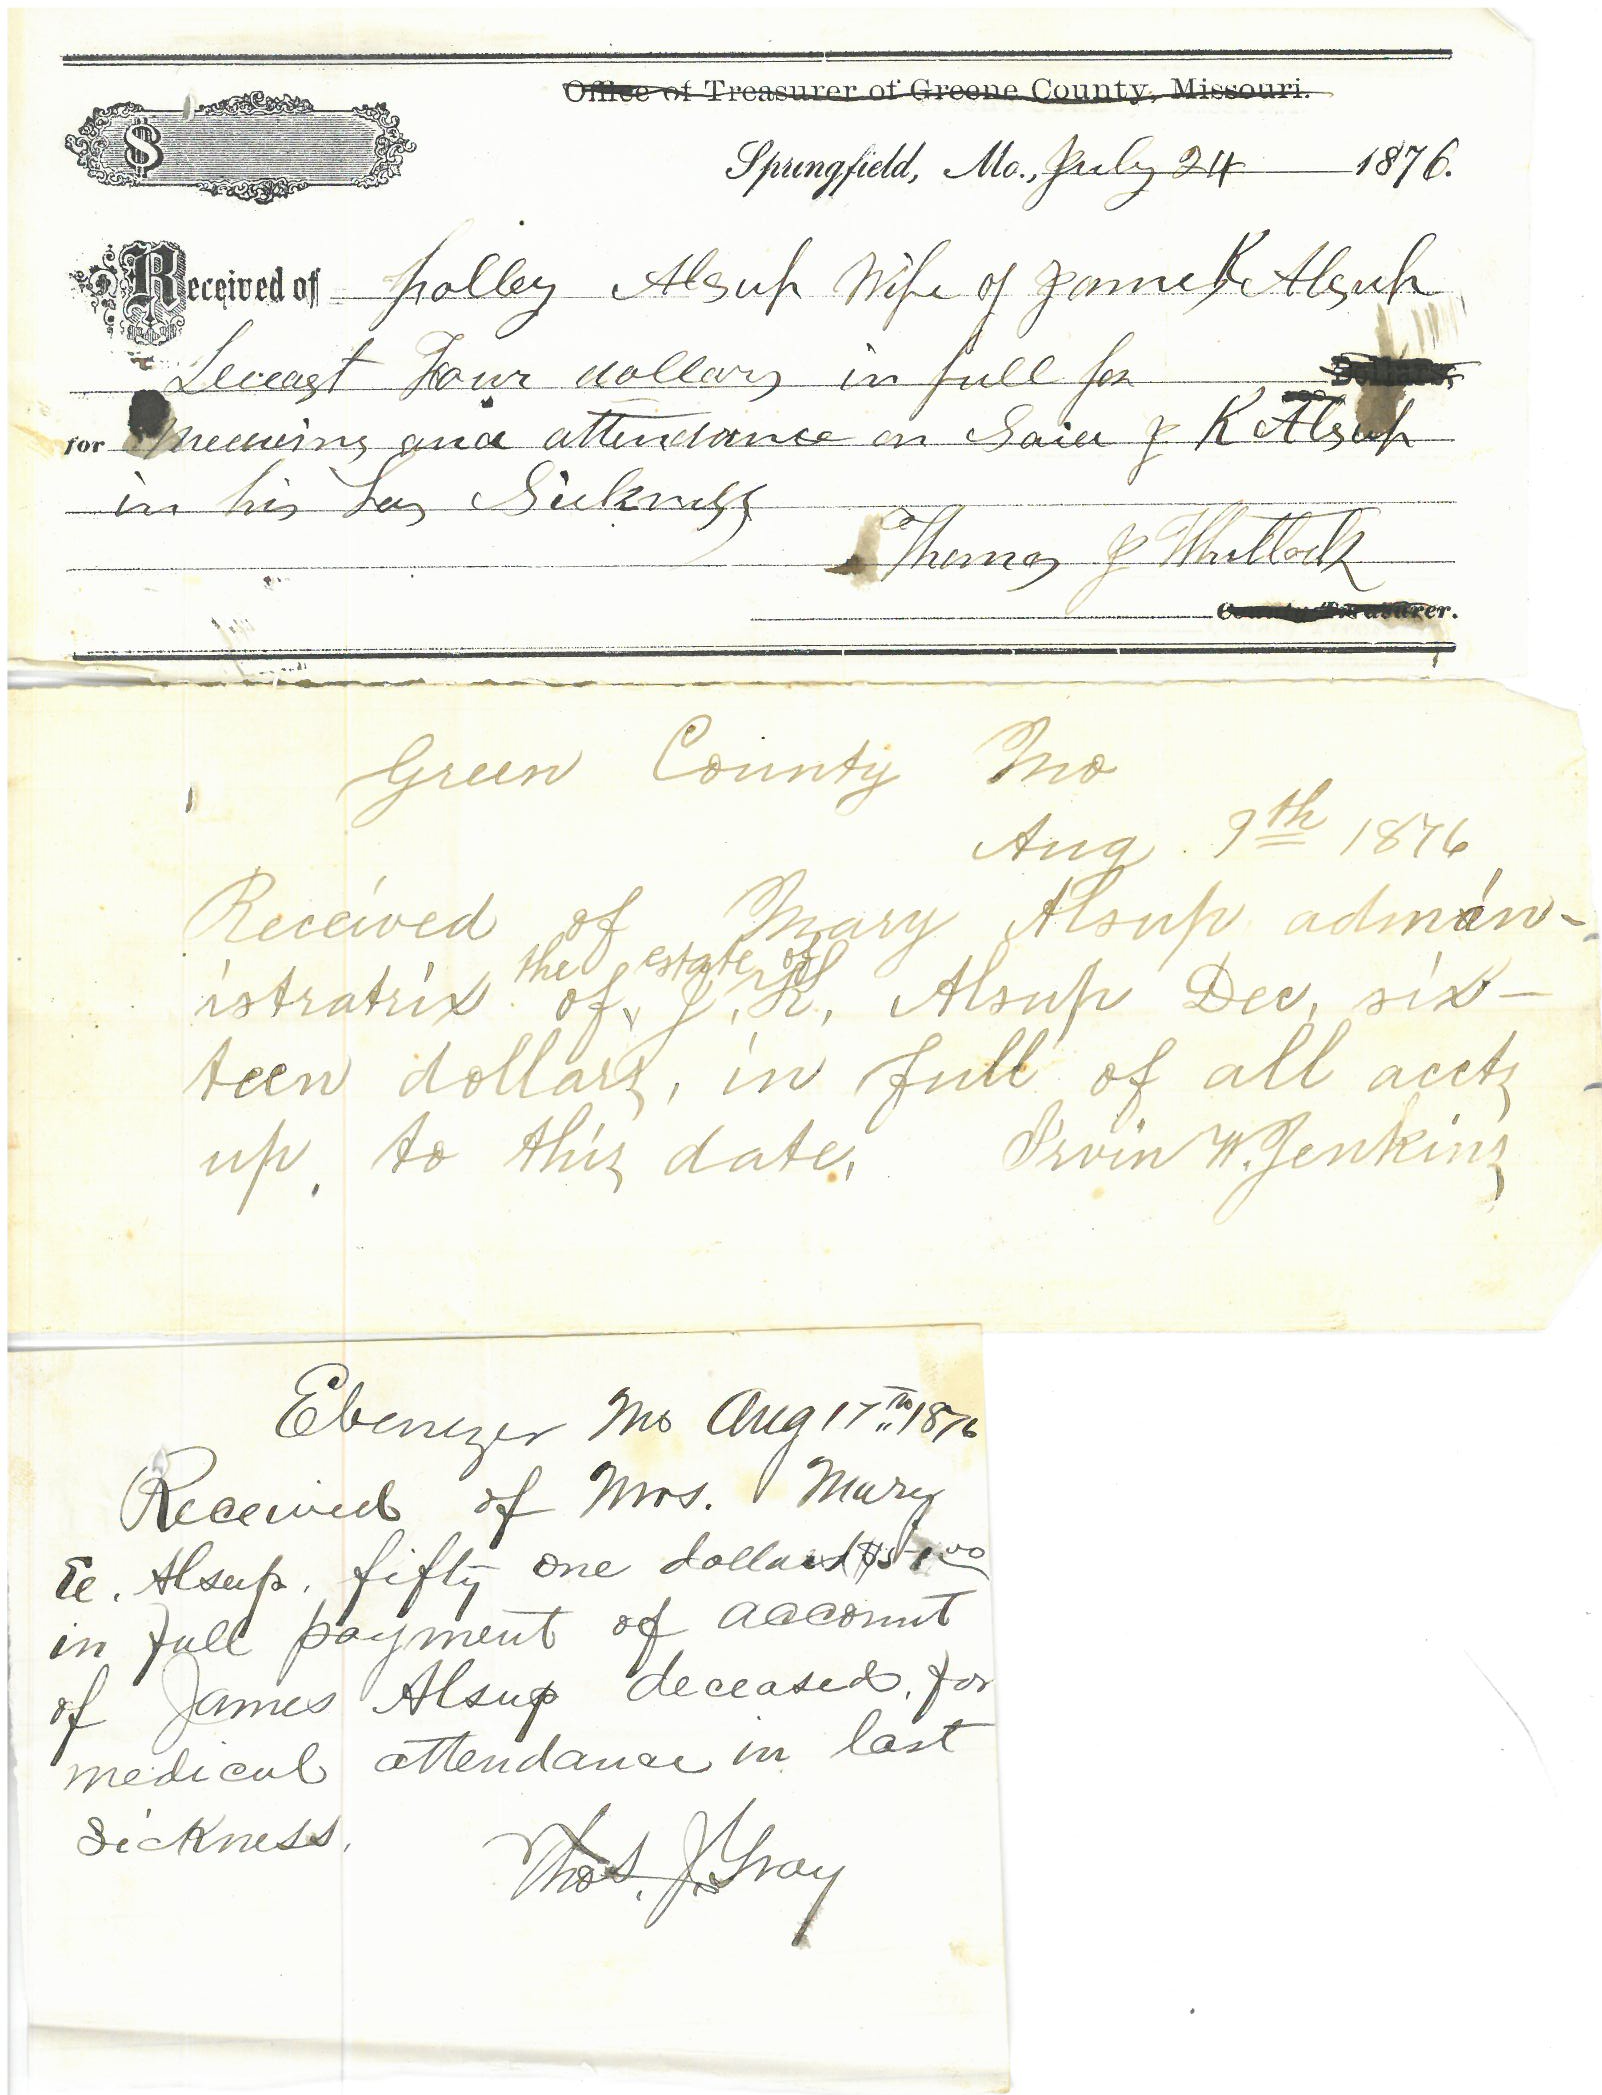 Office of Treasurer of Greene County, Missouri.
$
Springfield, Mo., July 24 1876.
Received of polley Alsup Wife of Jame K Alsup
Deceast Four dollars in full for Dollars,
for Medecins and attendance on Said J K Alsup
in his Las Sickness
Thomas J Whitlock
County Treasurer.
Green County Mo
Aug 9th 1876
Received of Mary Alsup admin-
the estate of
istratrix of J. K. Alsup Dec, six-
teen dollars, in full of all accts
up, to this date, Irvin W. Jenkins
Ebenezer Mo Aug 17th 1876
Received of Mrs. Mary
E. Alsup. fifty one dollars
in full payment of account
of James Alsup deceased, for
medical attendance in last
sickness.
Thos. J. Gray